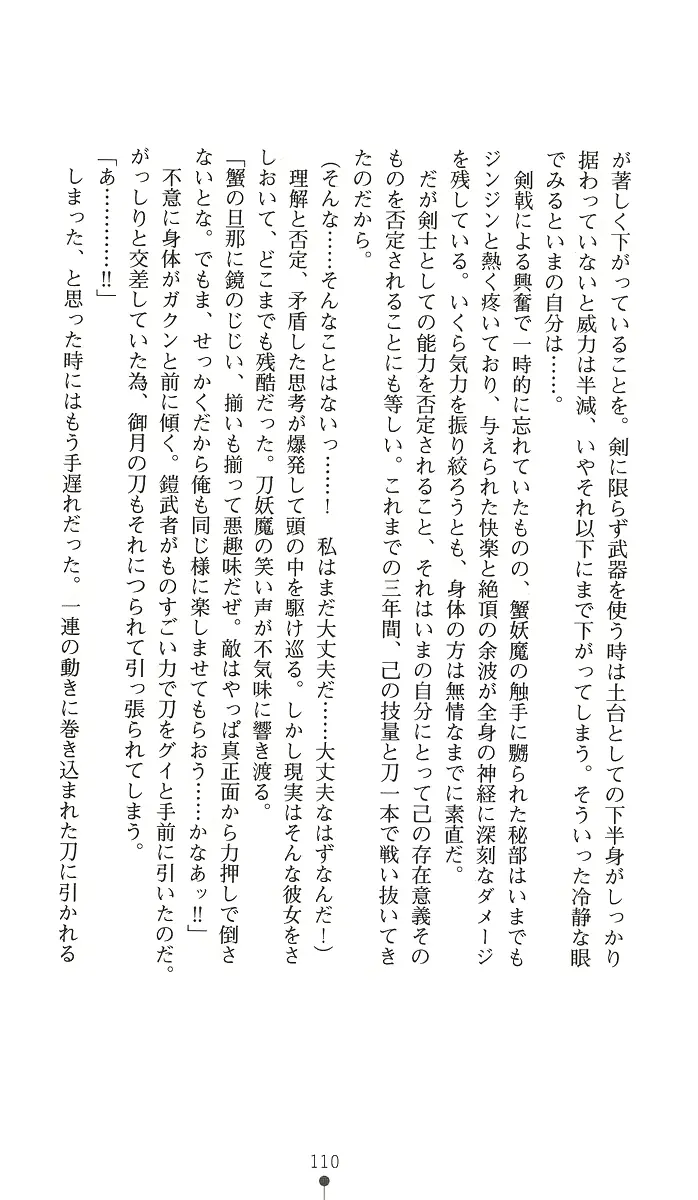 が著しく下がっていることを。剣に限らず武器を使う時は土台としての下半身がしっかり
据わっていないと威力は半減、いやそれ以下にまで下がってしまう。そういった冷静な眼
でみるといまの自分は……。
　剣戟による興奮で一時的に忘れていたものの、蟹妖魔の触手に嬲られた秘部はいまでも
ジンジンと熱く疼いており、与えられた快楽と絶頂の余波が全身の神経に深刻なダメージ
を残している。いくら気力を振り絞ろうとも、身体の方は無情なまでに素直だ。
　だが剣士としての能力を否定されること、それはいまの自分にとって己の存在意義その
ものを否定されることにも等しい。これまでの三年間、己の技量と刀一本で戦い抜いてき
たのだから。
（そんな……そんなことはないっ……！　私はまだ大丈夫だ……大丈夫なはずなんだ！）
　理解と否定、矛盾した思考が爆発して頭の中を駆け巡る。しかし現実はそんな彼女をさ
しおいて、どこまでも残酷だった。刀妖魔の笑い声が不気味に響き渡る。
「蟹の旦那に鏡のじじい、揃いも揃って悪趣味だぜ。敵はやっぱ真正面から力押しで倒さ
ないとな。でもま、せっかくだから俺も同じ様に楽しませてもらおう……かなあッ‼」
　不意に身体がガクンと前に傾く。鎧武者がものすごい力で刀をグイと手前に引いたのだ。
がっしりと交差していた為、御月の刀もそれにつられて引っ張られてしまう。
「あ…………‼」
　しまった、と思った時にはもう手遅れだった。一連の動きに巻き込まれた刀に引かれる
110